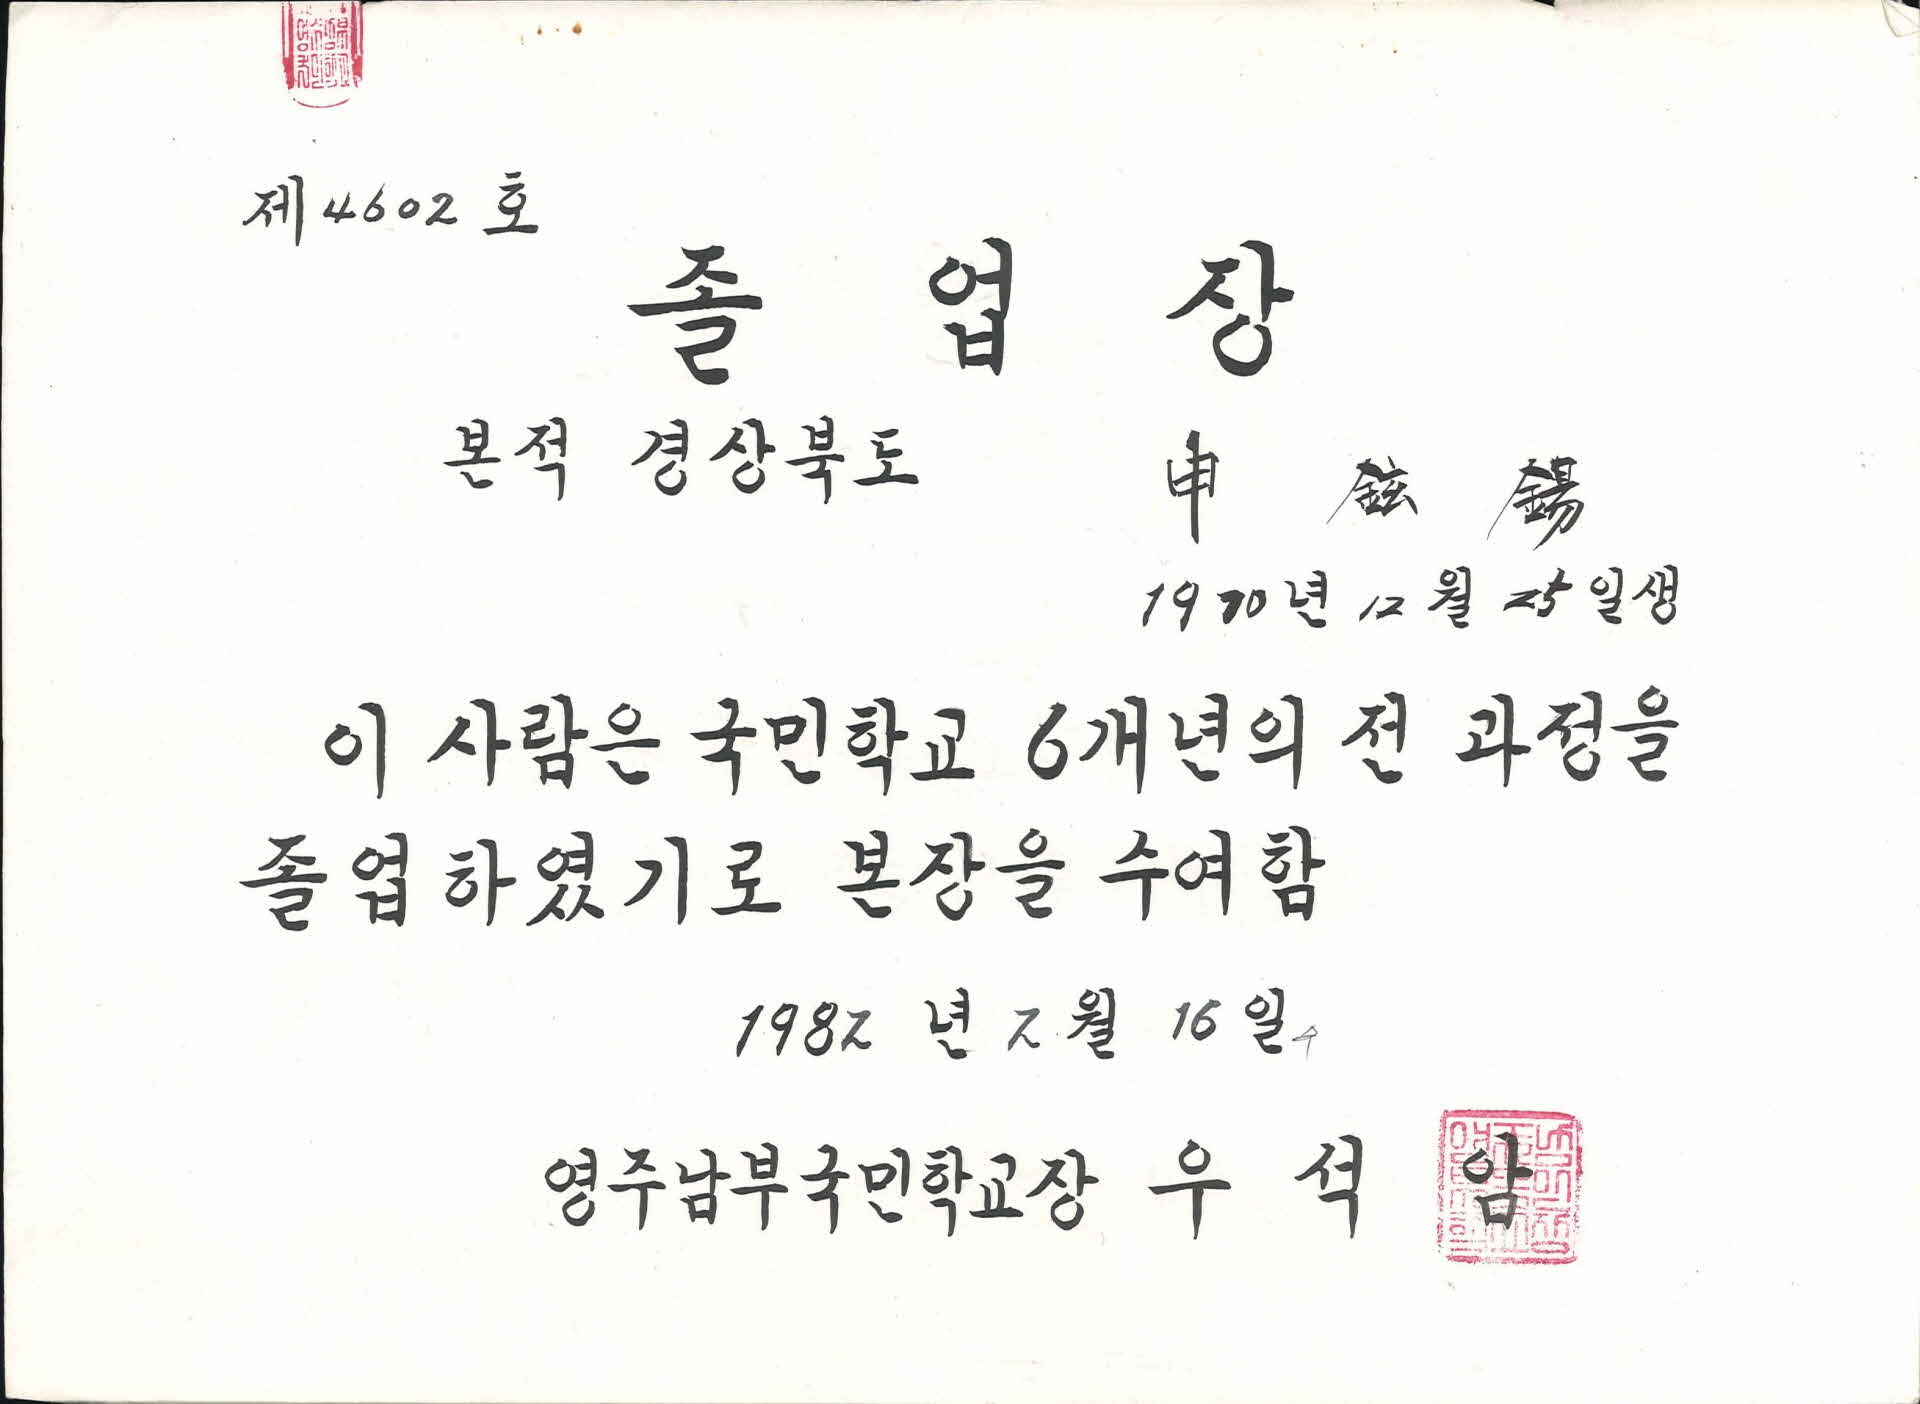 제4602호
졸업장
본적 경상북도
申鉉錫
1970년 12월 25일생
이 사람은 국민학교 6개년의 전 과정을
졸업하였기로 본장을 수여함
1982년 2월 16일
영주남부국민학교장 우석암